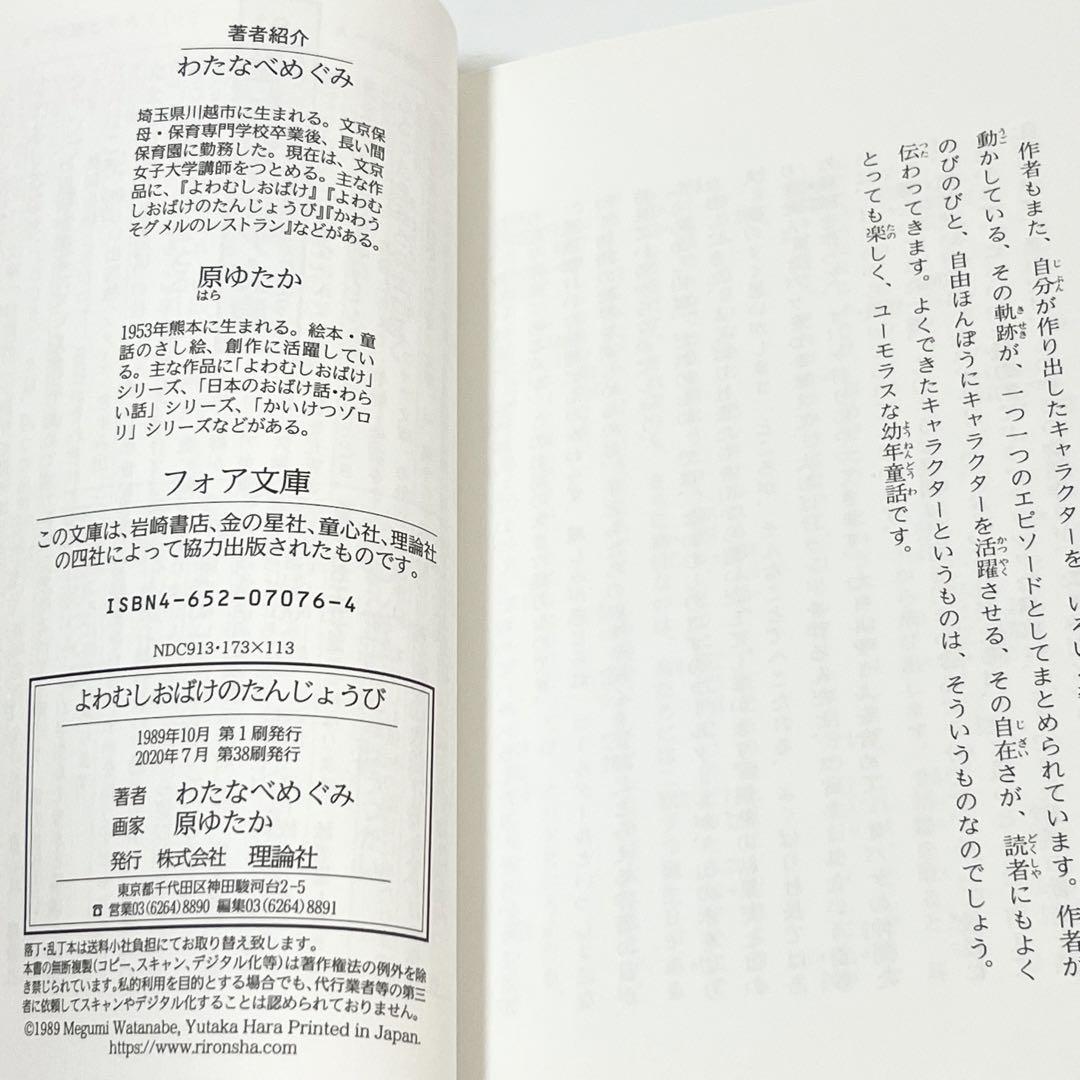 著者紹介
わたなべめぐみ
埼玉県川越市に生まれる。文京保
母・保育専門学校卒業後、長い間
保育園に勤務した。現在は、文京
女子大学講師をつとめる。主な作
品に、『よわむしおばけ』『よわむ
しおばけのたんじょうび』『かわう
そグメルのレストラン』などがある。
原ゆたか
はら
1953年熊本に生まれる。絵本・童
話のさし絵、創作に活躍してい
る。主な作品に「よわむしおばけ」
シリーズ、「日本のおばけ話・わら
い話」シリーズ、「かいけつゾロ
リ」シリーズなどがある。
フォア文庫
この文庫は、岩崎書店、金の星社、童心社、理論社
の四社によって協力出版されたものです。
ISBN4-652-07076-4
NDC913・173×113
よわむしおばけのたんじょうび
1989年10月 第1刷発行
2020年7月 第38刷発行
著者 わたなべめぐみ
画家 原ゆたか
発行 株式会社 理論社
東京都千代田区神田駿河台2-5
☎ 営業03(6264)8890 編集03(6264)8891
落丁・乱丁本は送料小社負担にてお取り替え致します。
本書の無断複製(コピー、スキャン、デジタル化等)は著作権法の例外を除
き禁じられています。私的利用を目的とする場合でも、代行業者等の第三
者に依頼してスキャンやデジタル化することは認められておりません。
©1989 Megumi Watanabe, Yutaka Hara Printed in Japan.
https://www.rironsha.com
作者もまた、自分が作り出したキャラクターを、いろい
動かしている、その軌跡が、一つ一つのエピソードとしてまとめられています。作者が
のびのびと、自由ほんぽうにキャラクターを活躍させる、その自在さが、読者にもよく
伝わってきます。よくできたキャラクターというものは、そういうものなのでしょう。
とっても楽しく、ユーモラスな幼年童話です。